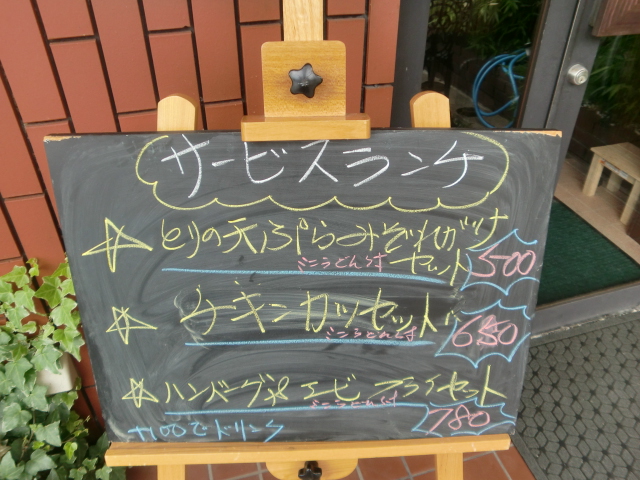 サービスランチ
☆ とりの天ぷらみぞれがけ
セット 500
ミニうどんつき
☆ チキンカツセット 650
ミニうどんつき
☆ ハンバーグ&エビフライセット
ミニうどんつき
780
+100でドリンク